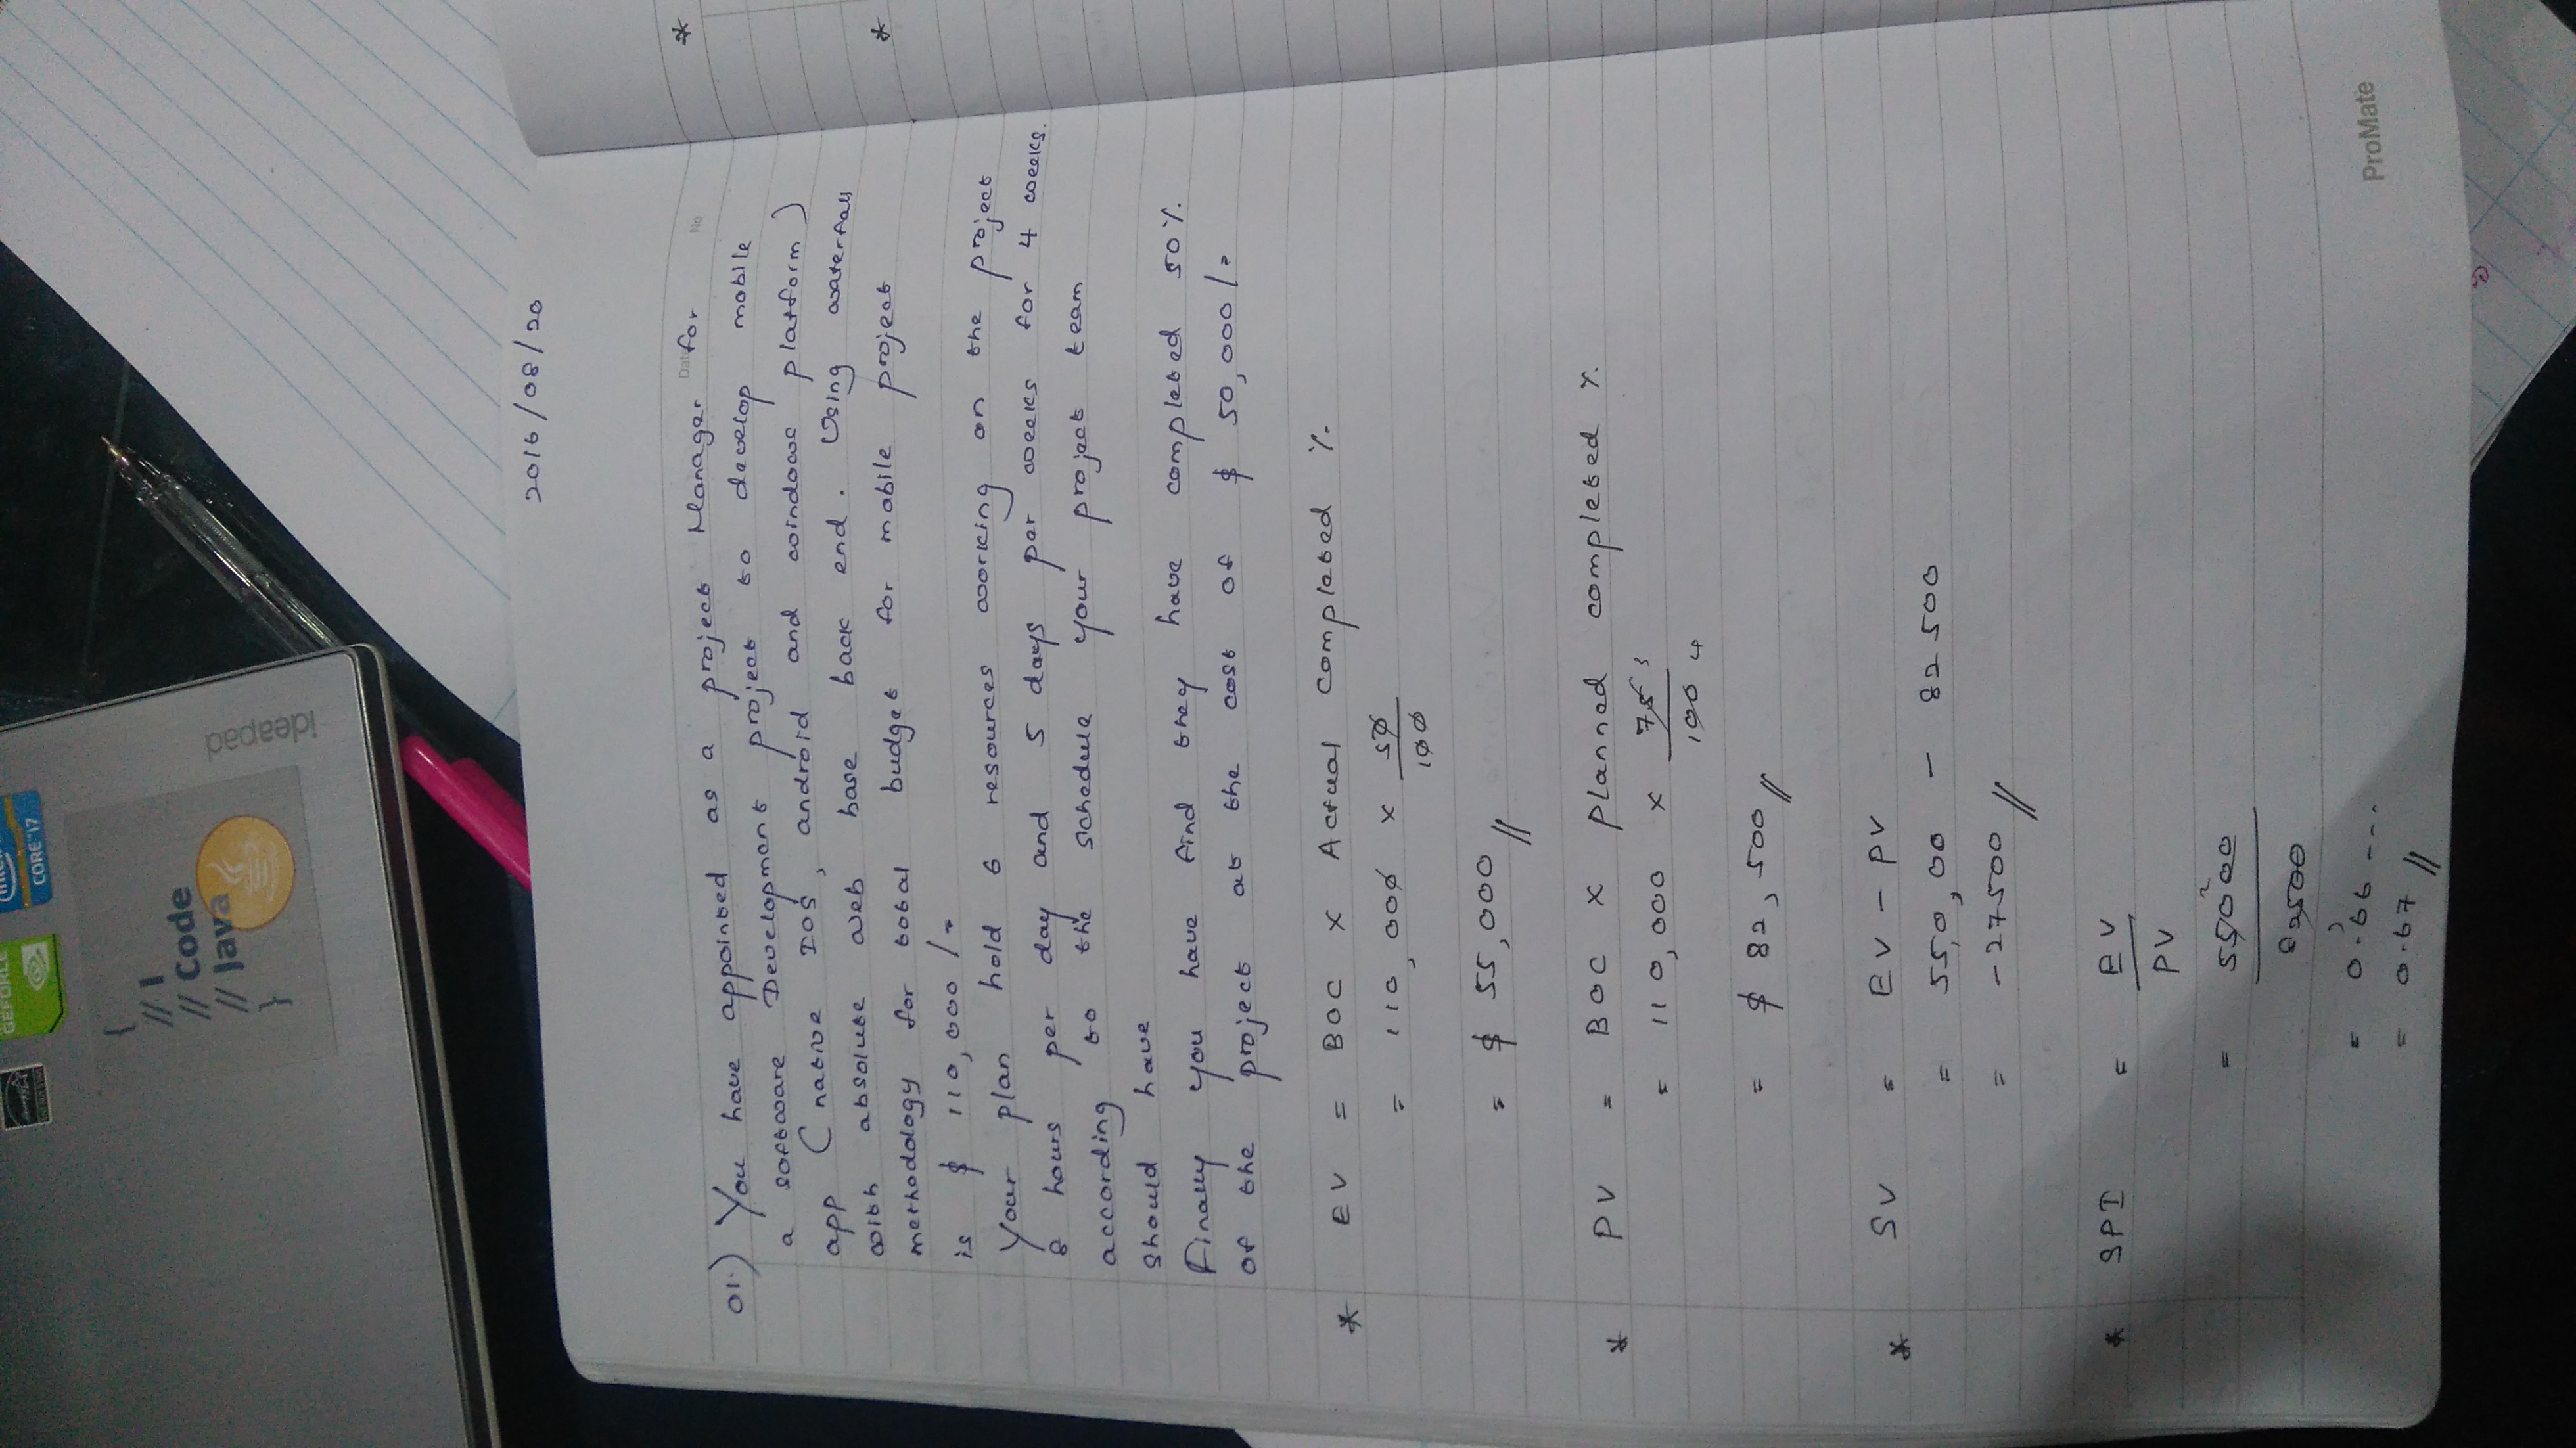 GEFORCE
CORE i7
{
// I
// Code
// Java
}
ideapad
2016/08/20
Date
No
01.) You have appointed as a project Manager for
a software Development project to develop mobile
app (native IOS, android and windows platform)
with absolute web base back end. Using waterfall
methodology for total budget for mobile project
is $ 110,000/=
Your plan hold 6 resources working on the project
8 hours per day and 5 days per weeks for 4 weeks.
according to the schedule your project team
should have
Finally you have find they have completed 50%
of the project at the cost of $ 50,000/=
* EV = BOC x Actual completed %
= 110,000 x 50
100
= $ 55,000 //
* PV = BOC x planned completed %
= 110,000 x 75 3
100 4
= $ 82,500 //
* SV = EV - PV
= 550,00 - 82500
= -27500 //
* SPI = EV
PV
2
= 55000
82500
3
= 0.66 ---
= 0.67 //
ProMate
*
*